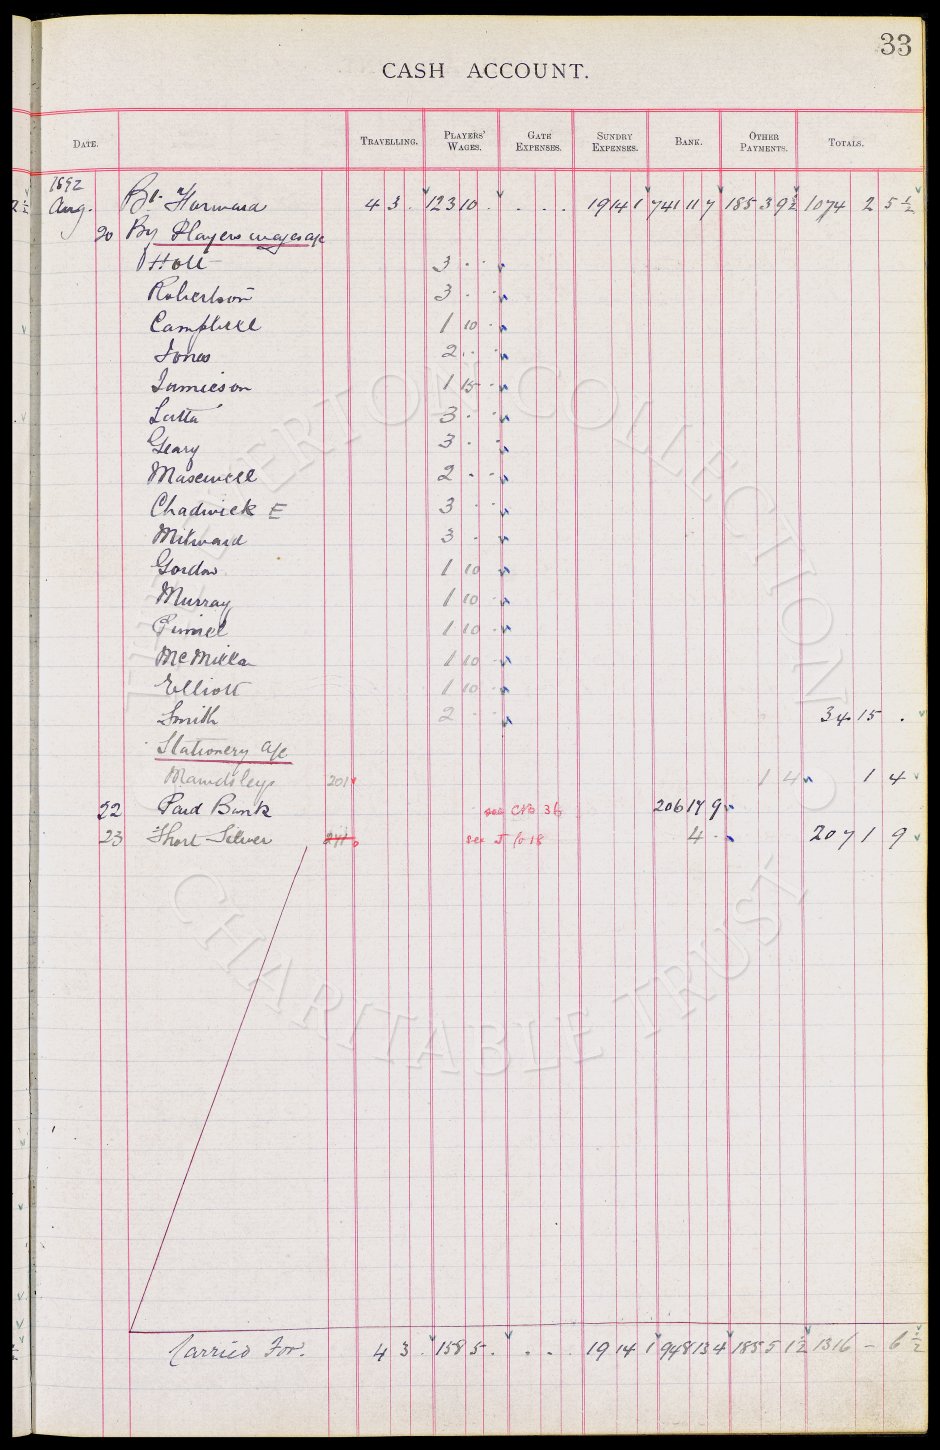 33
CASH ACCOUNT.
DATE. TRAVELLING. PLAYERS' WAGES. GATE EXPENSES. SUNDRY EXPENSES. BANK. OTHER PAYMENTS. TOTALS.
1892
Aug. Bt. Forward 4 3 . 123 10 . . . . 19 14 1 741 11 7 185 3 9½ 1074 2 5½
20 By Players wages a/c
Holt 3 . .
Robertson 3 . .
Campbell 1 10 .
Jones 2 . .
Jamieson 1 15 .
Latta 3 . .
Geary 3 . .
Maxwell 2 . .
Chadwick E 3 . .
Milward 3 .
Gordon 1 10 .
Murray 1 10 .
Pinnel 1 10 .
McMillan 1 10 .
Elliott 1 10 .
Smith 2 . . 34 15 .
Stationery a/c
Mawdsleys 201 1 4 1 4
22 Paid Bank see CB 36 206 17 9
23 Short Silver 241 see J fo 18 4 . 207 1 9
Carried For. 4 3 . 158 5 . . . . 19 14 1 948 13 4 185 5 1½ 1316 – 6½
THE EVERTON COLLECTION
CHARITABLE TRUST